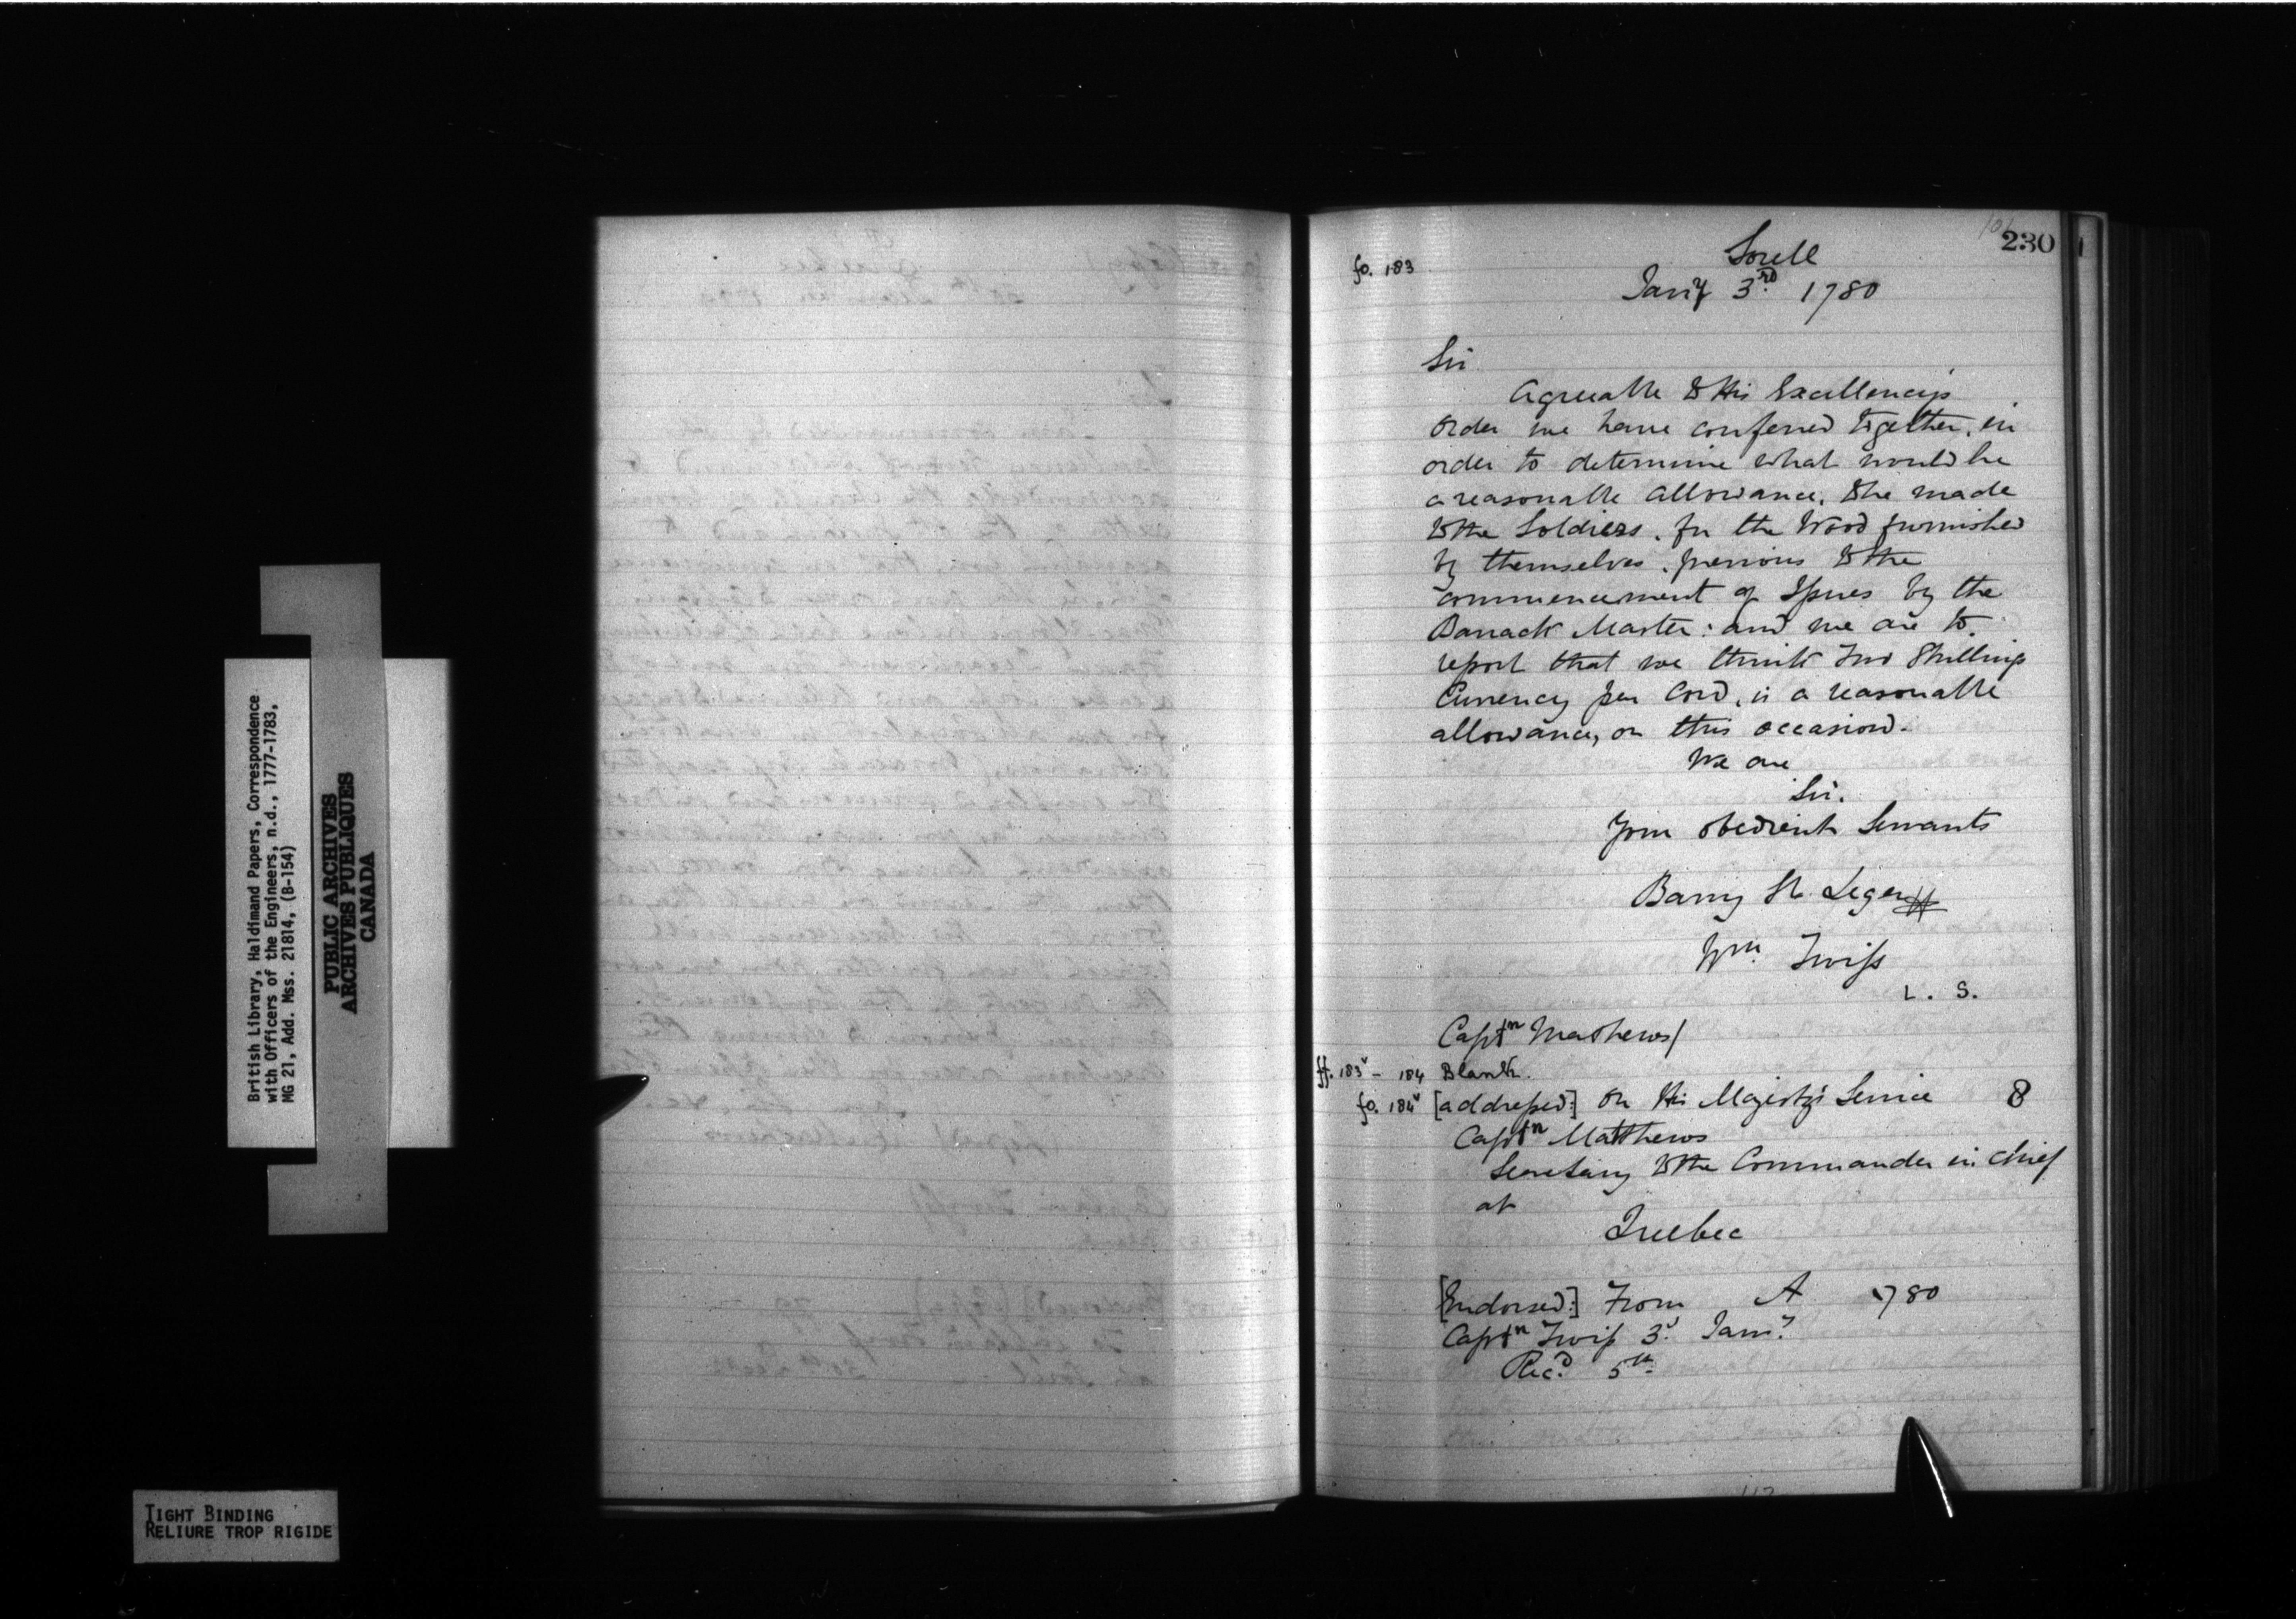 British Library, Haldimand Papers, Correspondence
with Officers of the Engineers, n.d., 1777-1783,
MG 21, Add. Mss. 21814, (B-154)
PUBLIC ARCHIVES
ARCHIVES PUBLIQUES
CANADA
TIGHT BINDING
RELIURE TROP RIGIDE
230
fo. 183
Sorell
Jan'y 3rd 1780
Sir
Agreeable to His Excellency's
order we have conferred together, in
order to determine what would be
a reasonable allowance, to be made
to the Soldiers, for the Wood furnished
by themselves, previous to the
commencement of Issues by the
Barrack Master: and we are to
report that we think Two Shillings
Currency per Cord, is a reasonable
allowance, on this occasion.
We are
Sir.
Your obedient Servants
Barry St. Leger
Wm. Twiss
L. S.
Captn Mathews/
ff. 183v - 184 Blank.
fo. 184v [addressed:] On His Majesty's Service 8
Captn Matthews
Secretary to the Commander in chief
at
Quebec
[Endorsed:] From A 1780
Captn Twiss 3d Jany
Recd. 5th